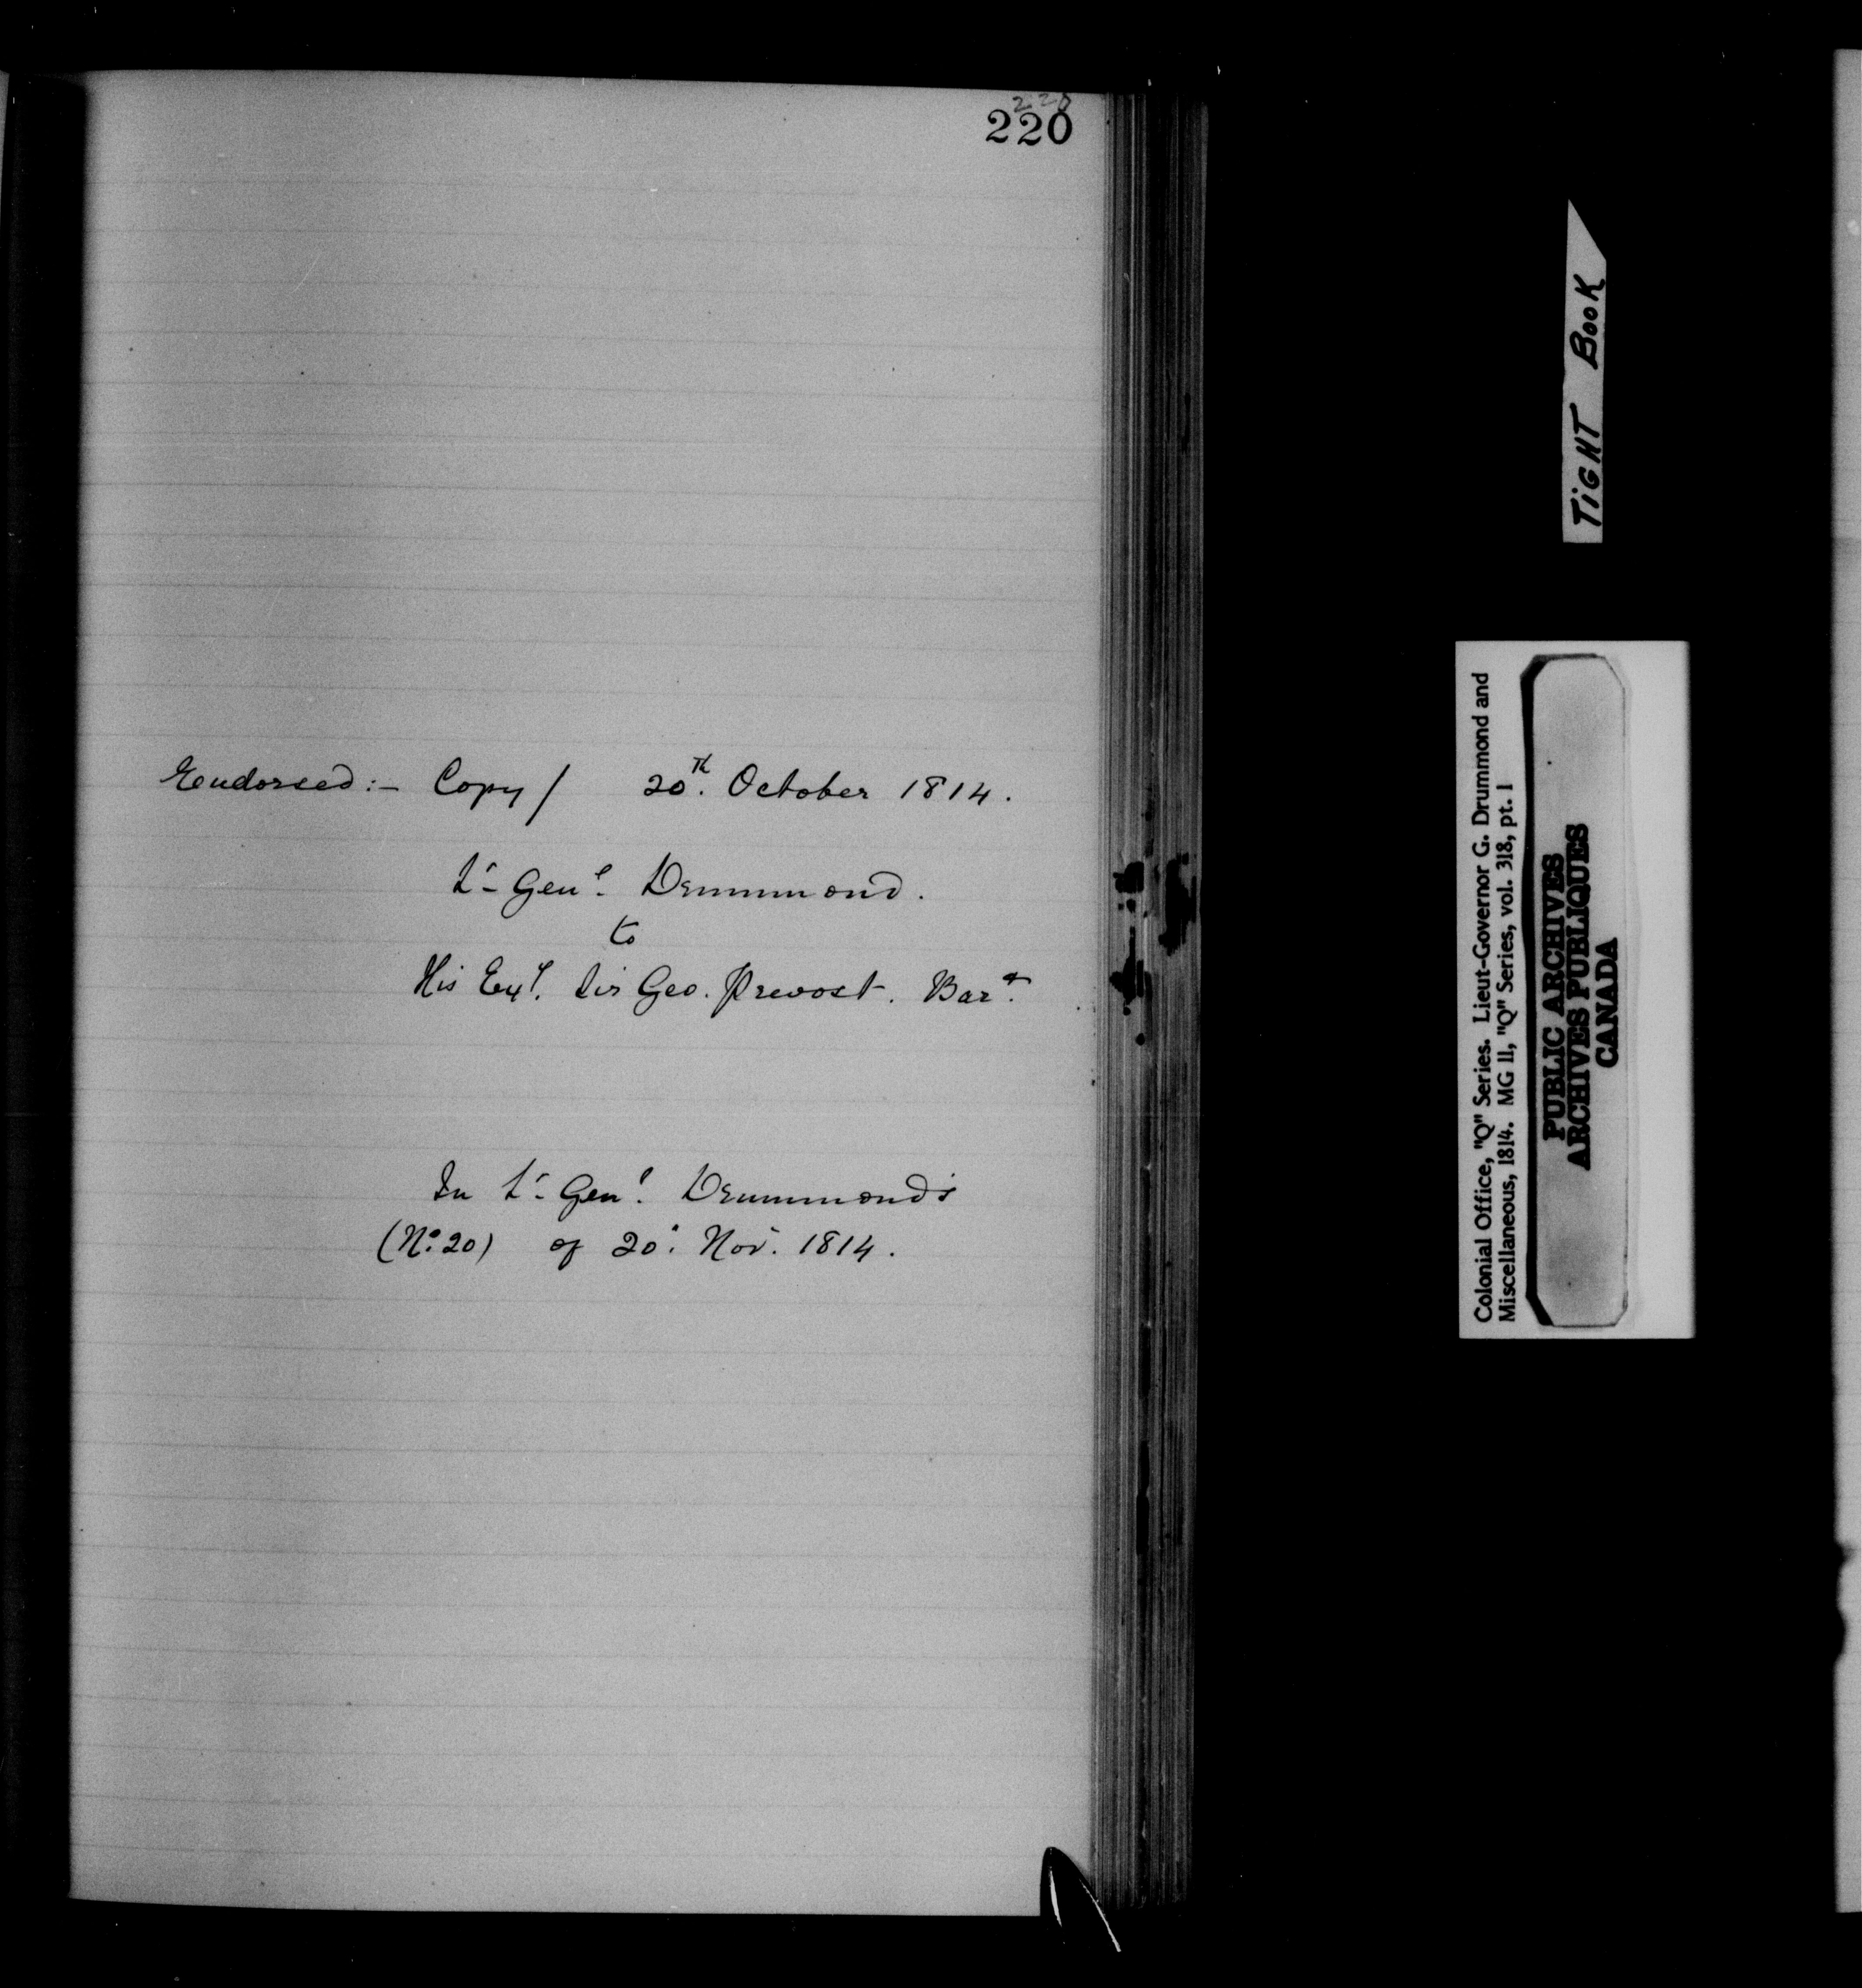 220
220
Endorsed:- Copy/ 20th. October 1814.
Lt- Genl. Drummond.
to
His Exy. Sir Geo. Prevost. Bart.
In Lt- Genl. Drummond's
(No. 20) of 20. Nov. 1814.
TIGHT BOOK
Colonial Office, "Q" Series. Lieut-Governor G. Drummond and
Miscellaneous, 1814. MG 11, "Q" Series, vol. 318, pt. 1
PUBLIC ARCHIVES
ARCHIVES PUBLIQUES
CANADA